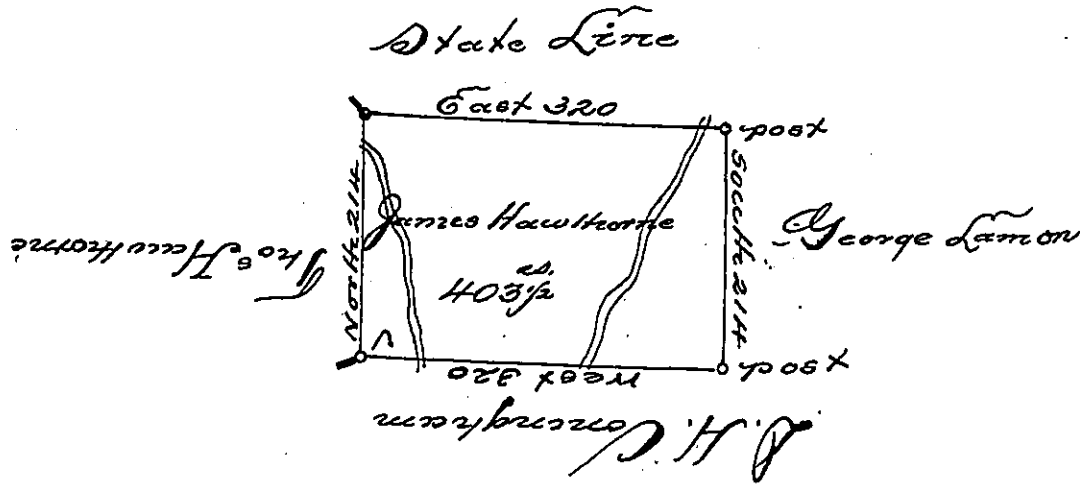 State Line
East 320
post
North 214
James Hawthorne
South 214
George Lamon
Thos Hawthorne
403 1/2 as.
West 320
post
D. H. Conyngham